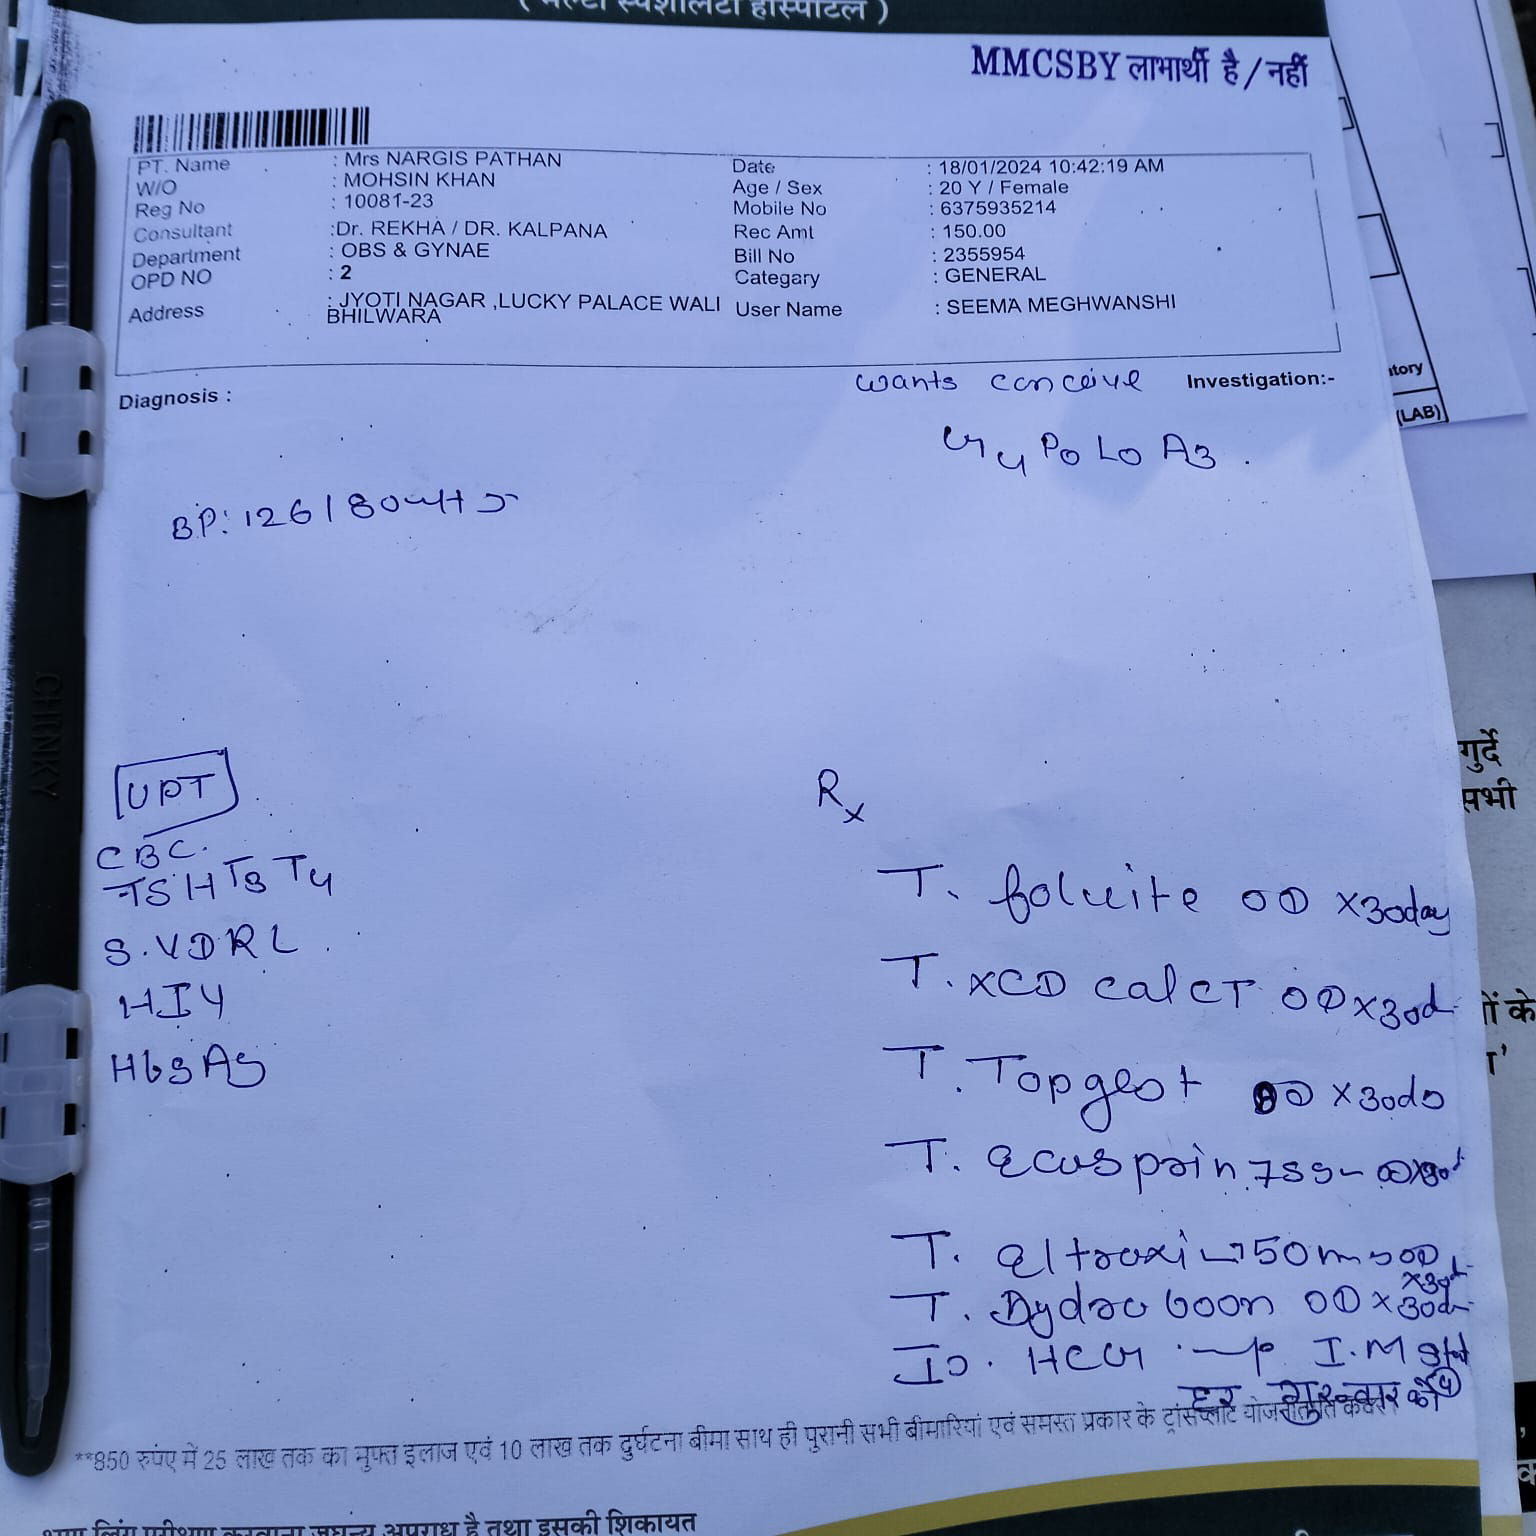 ( मल्टी स्पेशलिटी हॉस्पीटल )
MMCSBY लाभार्थी है / नहीं
PT. Name : Mrs NARGIS PATHAN
W/O : MOHSIN KHAN
Reg No : 10081-23
Consultant :Dr. REKHA / DR. KALPANA
Department : OBS & GYNAE
OPD NO : 2
Address : JYOTI NAGAR ,LUCKY PALACE WALI BHILWARA
Date : 18/01/2024 10:42:19 AM
Age / Sex : 20 Y / Female
Mobile No : 6375935214
Rec Amt : 150.00
Bill No : 2355954
Categary : GENERAL
User Name : SEEMA MEGHWANSHI
Diagnosis :
wants conceive
Investigation:-
G4 P0 L0 A3
BP: 126/80
UPT
CBC.
TSH T3 T4
S.VDRL
HIV
HbsAg
Rx
T. folvite OD x30day
T. XCD calCT OD x30d
T. Topgest x30ds
T. ecusprin 75
T. eltroxin 50 OD
x30d
T. Dydroboon OD x30d
HCG I.M
हर गुरुवार को
**850 रुपए में 25 लाख तक का मुफ्त इलाज एवं 10 लाख तक दुर्घटना बीमा साथ ही पुरानी सभी बीमारियां एवं समस्त प्रकार के ट्रांसप्लांट
है तथा इसकी शिकायत
CHENKY
(LAB)
गुर्दे
सभी